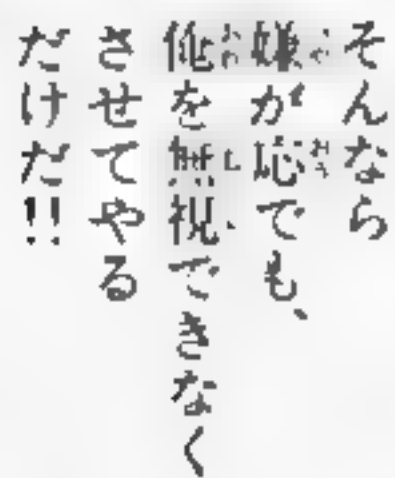 そんなら
嫌が応でも、
俺を無視できなく
させてやる
だけだ!!